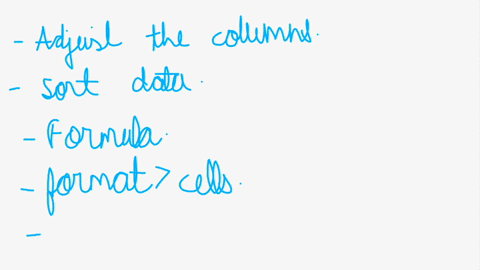 - Adjust the columns.
- sort data.
- Formula.
- format > cells.
-